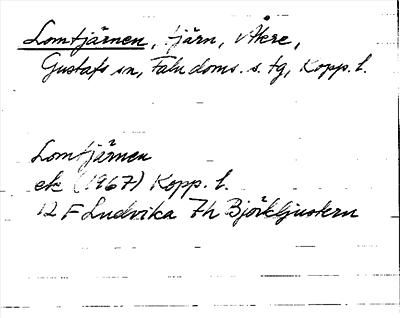 Lomtjärnen, tjärn, v Åkre,
Gustafs sn, Falu doms. s. tg, Kopp. l.
Lomtjärnen
ek (1967) Kopp. l.
12 F Ludvika 7h Björkljustern